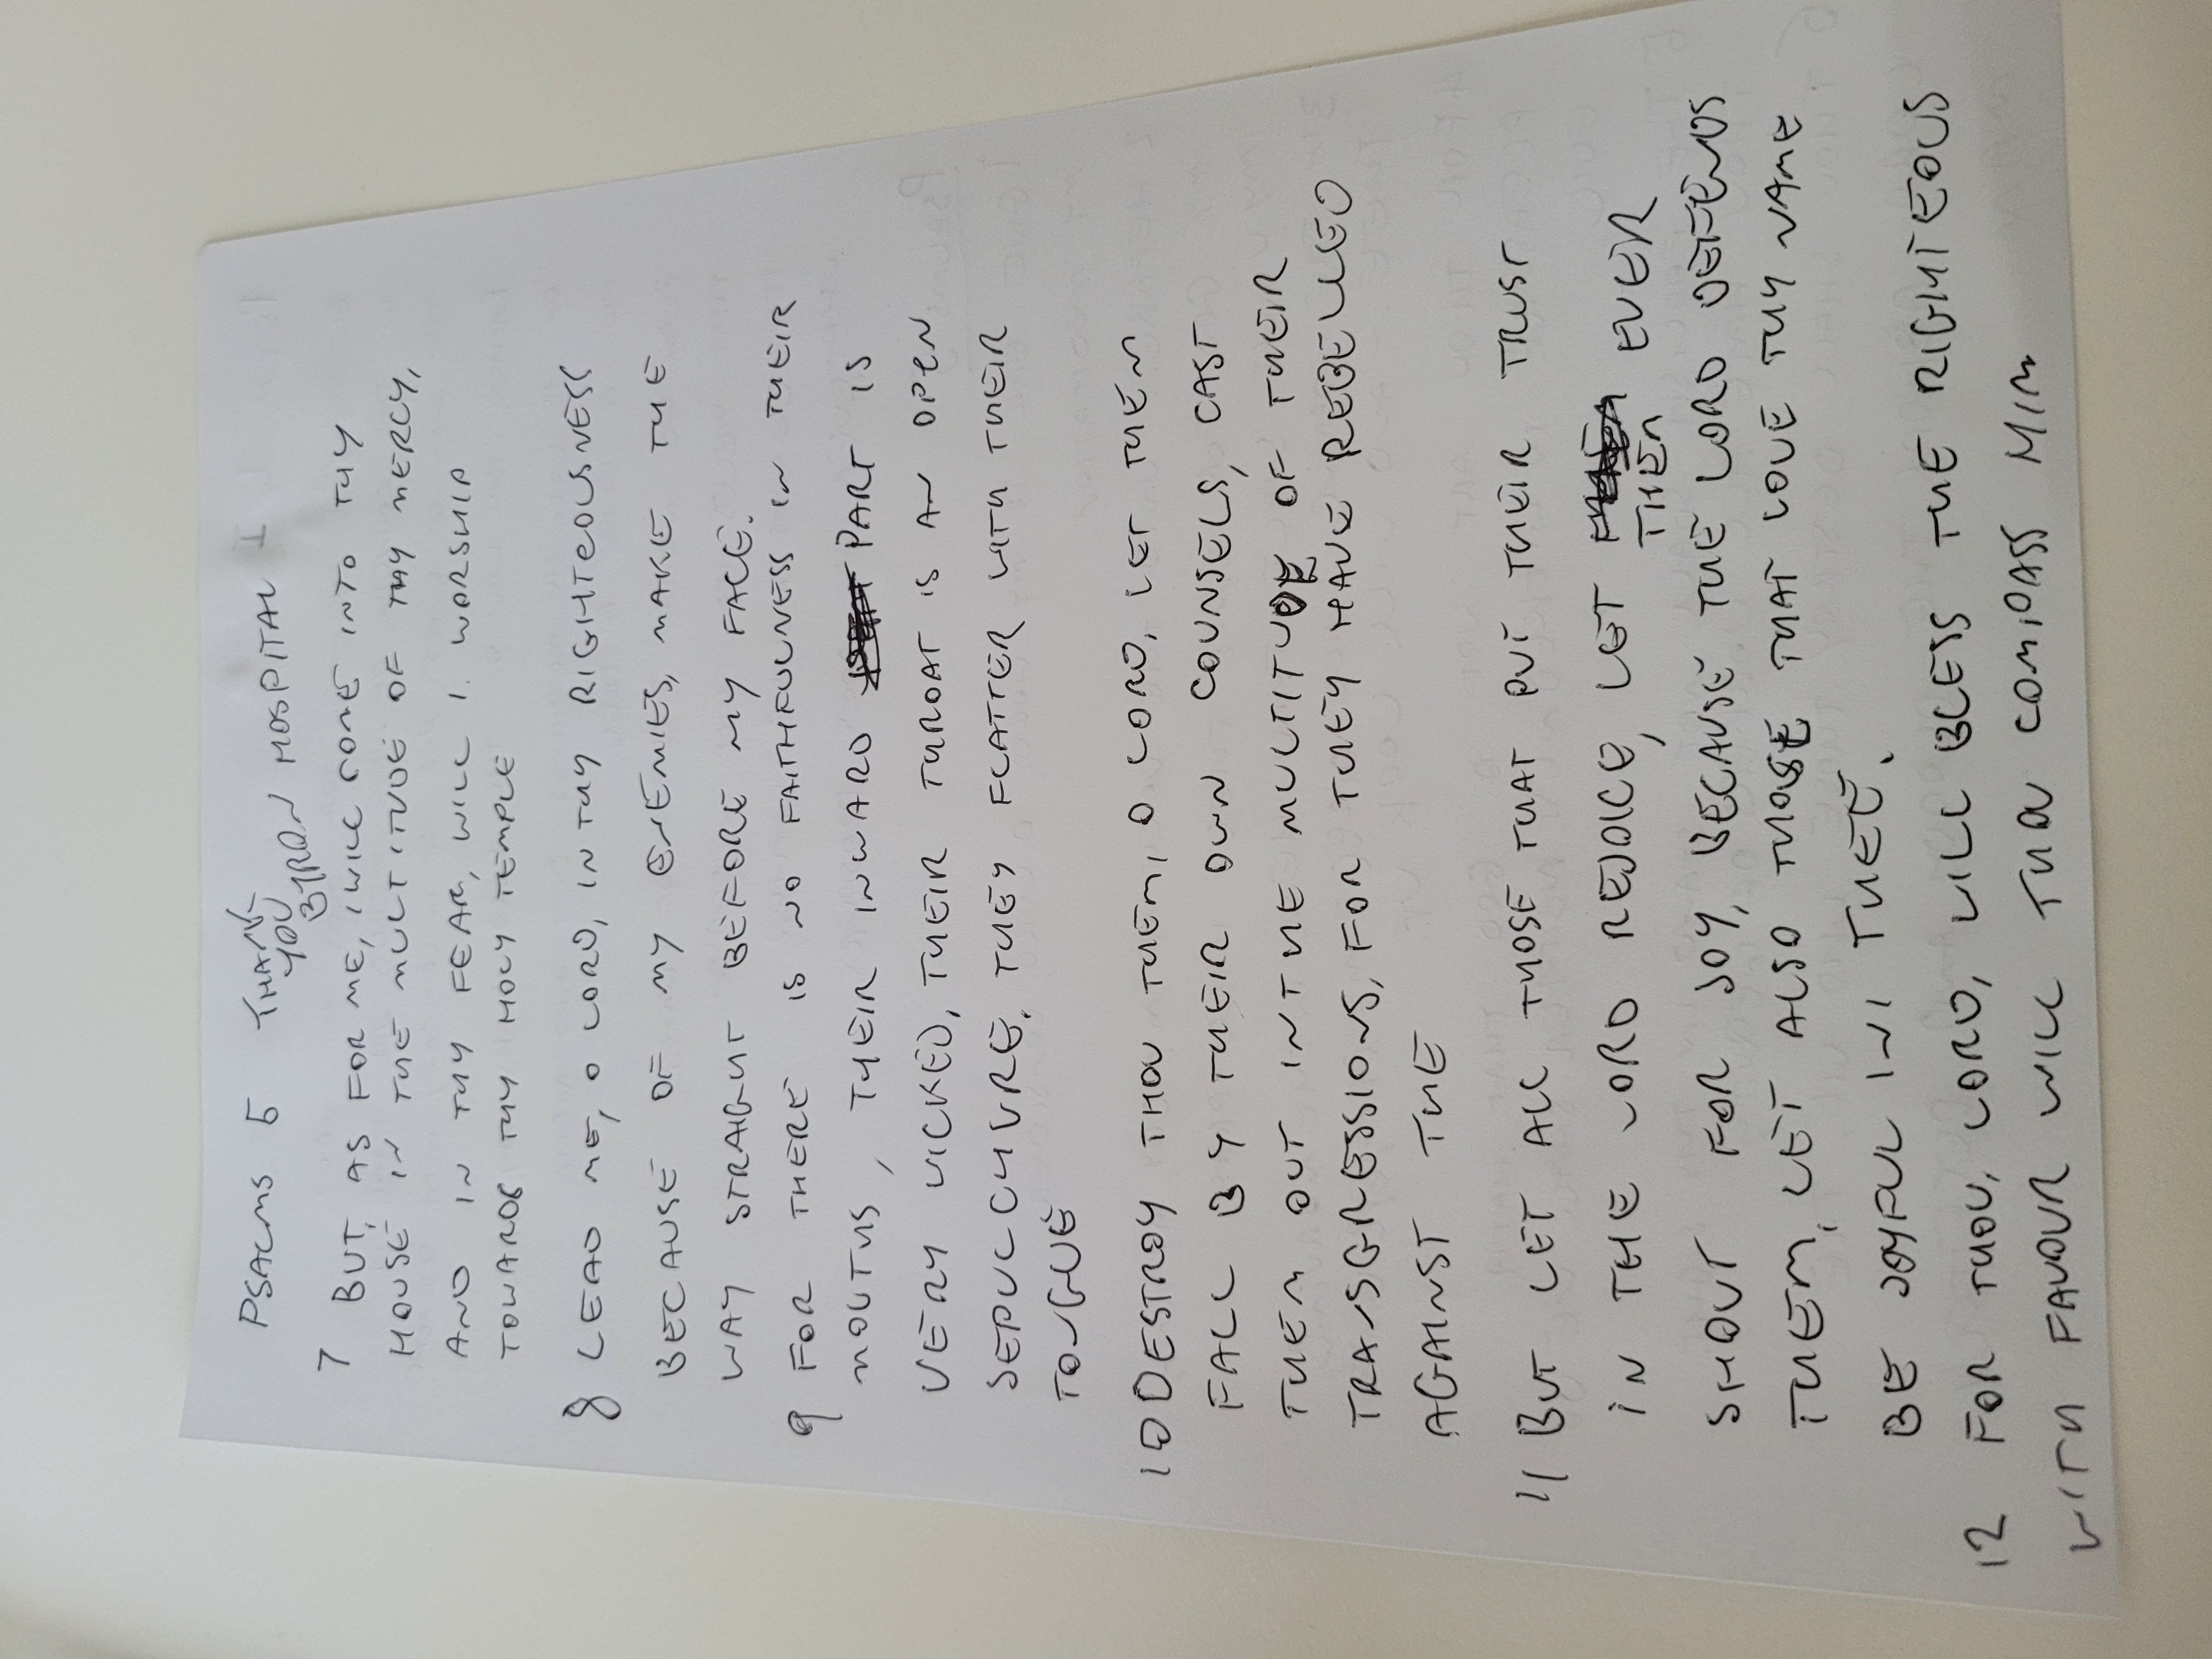 PSALMS 5 THANK
YOU
BYRON HOSPITAL
7 BUT, AS FOR ME, I WILL COME INTO THY
HOUSE IN THE MULTITUDE OF THY MERCY,
AND IN THY FEAR, WILL I. WORSHIP
TOWARDS THY HOLY TEMPLE
8 LEAD ME, O LORD, IN THY RIGHTEOUSNESS
BECAUSE OF MY ENEMIES, MAKE THE
WAY STRAIGHT BEFORE MY FACE.
9 FOR THERE IS NO FAITHFULNESS IN THEIR
MOUTHS, THEIR INWARD PART IS
VERY WICKED, THEIR THROAT IS AN OPEN
SEPULCHURE. THEY FLATTER WITH THEIR
TONGUE
10 DESTROY THOU THEM, O LORD, LET THEM
FALL BY THEIR OWN COUNSELS, CAST
THEM OUT IN THE MULTITUDE OF THEIR
TRANSGRESSIONS, FOR THEY HAVE REBELLED
AGAINST THE
11 BUT LET ALL THOSE THAT PUT THEIR TRUST
IN THE LORD REJOICE, LET THEM EVER
SHOUT FOR JOY, BECAUSE THE LORD DEFENDS
THEM, LET ALSO THOSE THAT LOVE THY NAME
BE JOYFUL IN THEE.
12 FOR THOU, LORD, WILL BLESS THE RIGHTEOUS
WITH FAVOUR WILL THOU COMPASS HIM